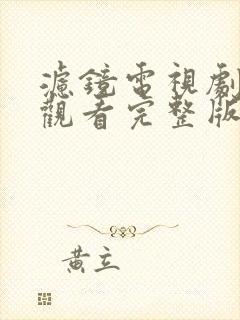 濾鏡電視劇
觀看完整版
黃立